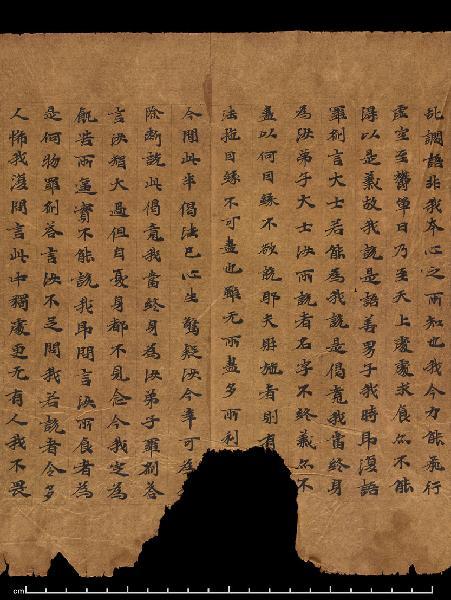 此謂語非我本心之所知也我今力能飛行
虛空至欝單曰乃至天上處處求食亦不能
得以是義故我說是語善男子我時即復語
羅刹言大士若能為我說是偈竟我當終身
為汝弟子大士汝所說者名字不終義亦不
盡以何因緣不欲說耶夫財施者則有
法施因緣不可盡也雖无所盡多所利
今聞此半偈法已心生驚疑汝今幸可為
除斷說此偈竟我當終身為汝弟子羅刹答
言汝智大過但自憂身都不見念今我定為
飢苦所逼實不能說我即問言汝所食者為
是何物羅刹答言汝不足問我若說者令多
人怖我復問言此中獨處更无有人我不畏
cm